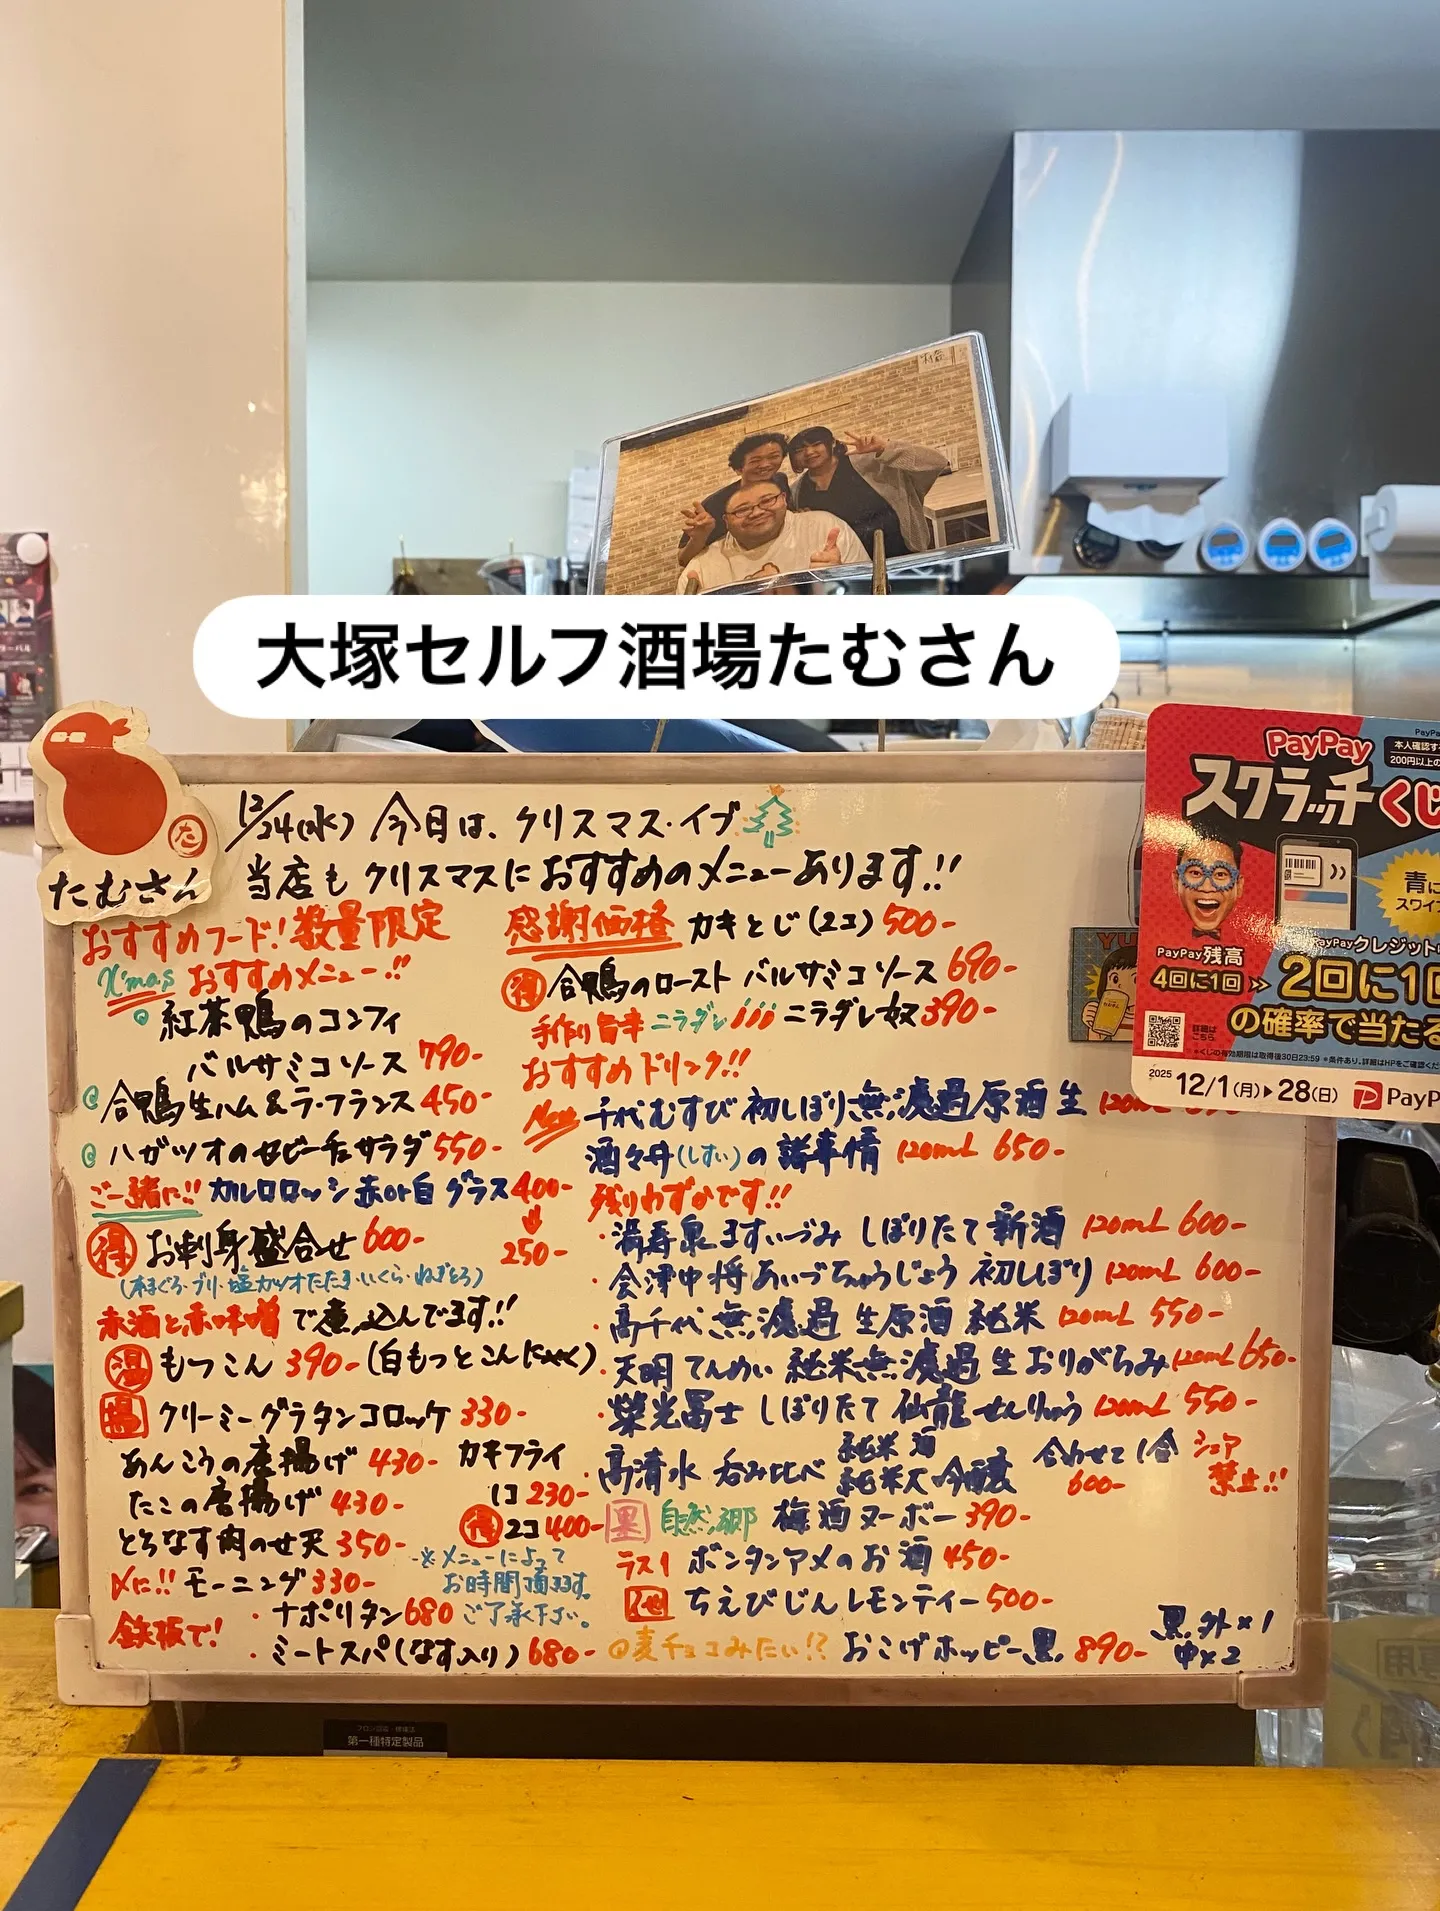 大塚セルフ酒場たむさん
たむさん
た
12/24(水) 今日は、クリスマス・イブ
当店もクリスマスにおすすめのメニューあります!!
おすすめフード!数量限定
X'mas おすすめメニュー!!
紅茶鴨のコンフィ
バルサミコソース 790-
合鴨生ハム&ラ・フランス 450-
ハガツオのセビーチェサラダ 550-
ご一緒に!! カルロロッシ赤or白 グラス400-
250-
得 お刺身盛合せ 600-
(本まぐろ・ブリ・塩カツオたたき・いくら・ねぎとろ)
赤酒と赤味噌で煮込んでます!!
温 もつこん 390-(白もつとこんにゃく)
揚 クリーミーグラタンコロッケ 330-
あんこうの唐揚げ 430-
たこの唐揚げ 430-
とちなす肉のせ天 350-
カキフライ
1コ 230-
得 2コ 400-
〆に!! モーニング 330-
※メニューによって
お時間頂きます。
ご了承下さい。
鉄板で!
・ナポリタン 680
・ミートスパ(なす入り) 680-
感謝価格 カキとじ(2コ) 500-
得 合鴨のロースト バルサミコソース 690-
手作り旨辛ニラダレ ニラダレ奴 390-
おすすめドリンク!!
New 千代むすび 初しぼり無濾過原酒生 120mL
酒々井(しすい)の諸事情 120mL 650-
残りわずかです!!
・満寿泉ますいづみ しぼりたて新酒 120mL 600-
・会津中将あいづちゅうじょう 初しぼり 120mL 600-
・高千代 無濾過生原酒 純米 120mL 550-
・天明てんめい 純米無濾過生おりがらみ 120mL 650-
・榮光冨士 しぼりたて 仙龍せんりゅう 120mL 550-
・高清水 呑み比べ 純米酒
純米大吟醸
合わせて1合
600-
シェア
禁止!!
果 自然郷 梅酒ヌーボー 390-
ラス1 ボンタンアメのお酒 450-
他 ちえびじんレモンティー 500-
麦チョコみたい!? おこげホッピー黒 890-
黒、外×1
中×2
PayPay
スクラッチくじ
本人確認す
200円以上の
青に
スワイプ
PayPay残高
4回に1回
PayPayクレジット
2回に1回
の確率で当たる
詳細は
こちら
*くじの有効期限は取得後30日23:59 *条件あり。詳細はHPをご確認くだ
2025 12/1(月)▶28(日)
PayP
YU
フロン回収・破壊法
第一種特定製品